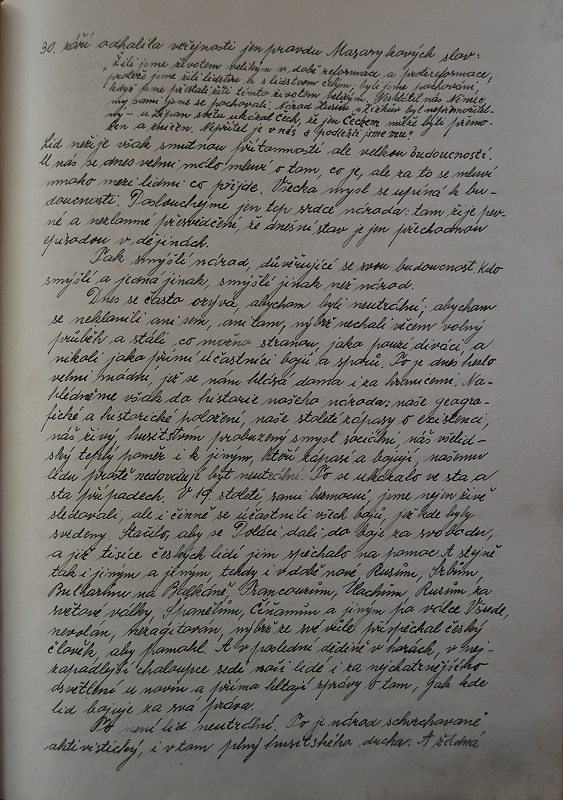 30. září odhalila veřejnosti jen pravdu Masarykových slov:
"Žili jsme životem velikým v době reformace a protireformace,
protože jsme žili lidstvu a s lidstvem celým, byli jsme pochováni,
když jsme přestali žíti tímto životem velkým. Neshltil nás Němec,
my sami jsme se pochovali. Národ Husův a Žižkův byl nepřemožitel-
ný – u Lipan světu ukázal Čech, že jen Čechem může býti přemo-
žen a zničen. Nepřítel je v nás a podlehli jsme mu."
Lid nežije však smutnou přítomností ale velkou budoucností.
U nás se dnes velmi málo mluví o tom, co je, ale za to se mluví
mnoho mezi lidmi co přijde. Všecka mysl se upíná k bu-
doucnosti. Poslouchejme jen tep srdce národa: tam žije pev-
né a nezlomné přesvědčení, že dnešní stav je jen přechodnou
episodou v dějinách.
Tak smýšlí národ, důvěřující se svou budoucnost. Kdo
smýšlí a jedná jinak, smýšlí jinak než národ.
Dnes se často ozývá, abychom byli neutrální; abychom
se neklonili ani sem, ani tam, nýbrž nechali věcem volný
průběh a stáli, co možno stranou, jako pouzí diváci, a
nikoli jako přímí účastníci bojů a sporů. To je dnes heslo
velmi módní, jež se nám hlásá doma i za hranicemi. Na-
hlédněme však do historie našeho národa: naše geogra-
fické a historické položení, naše staleté zápasy o existenci,
náš živý, husitstvím probuzený smysl sociální, náš všelid-
ský teplý poměr i k jiným, kteří zápasí a bojují, našemu
lidu prostě nedovolují být neutrální. To se ukázalo ve sta a
sta případech. V 19. století, sami bezmocní, jsme nejen živě
sledovali, ale i činně se účastnili všech bojů, jež kde byly
svedeny. Stačilo, aby se Poláci dali do boje za svobodu,
a již tisíce českých lidí jim spěchalo na pomoc. A stejně
tak i jiným a jiným, tehdy i v době nové, Rusům, Srbům,
Bulharům na Balkáně, Francouzům, Vlachům, Rusům za
světové války, Španělům, Číňanům a jiným po válce. Všude,
nevolán, nezagitován, nýbrž ze své vůle přispěchal český
člověk, aby pomáhal. A v poslední dědině v horách, v nej-
zapadlejší chaloupce sedí naši lidé i za nejchatrnějšího
osvětlení u novin a přímo hltají zprávy o tom, jak kde
lid bojuje za svá práva.
To není lid neutrální. To je národ svrchovaně
aktivistický, i v tom plný husitského ducha. A žádná